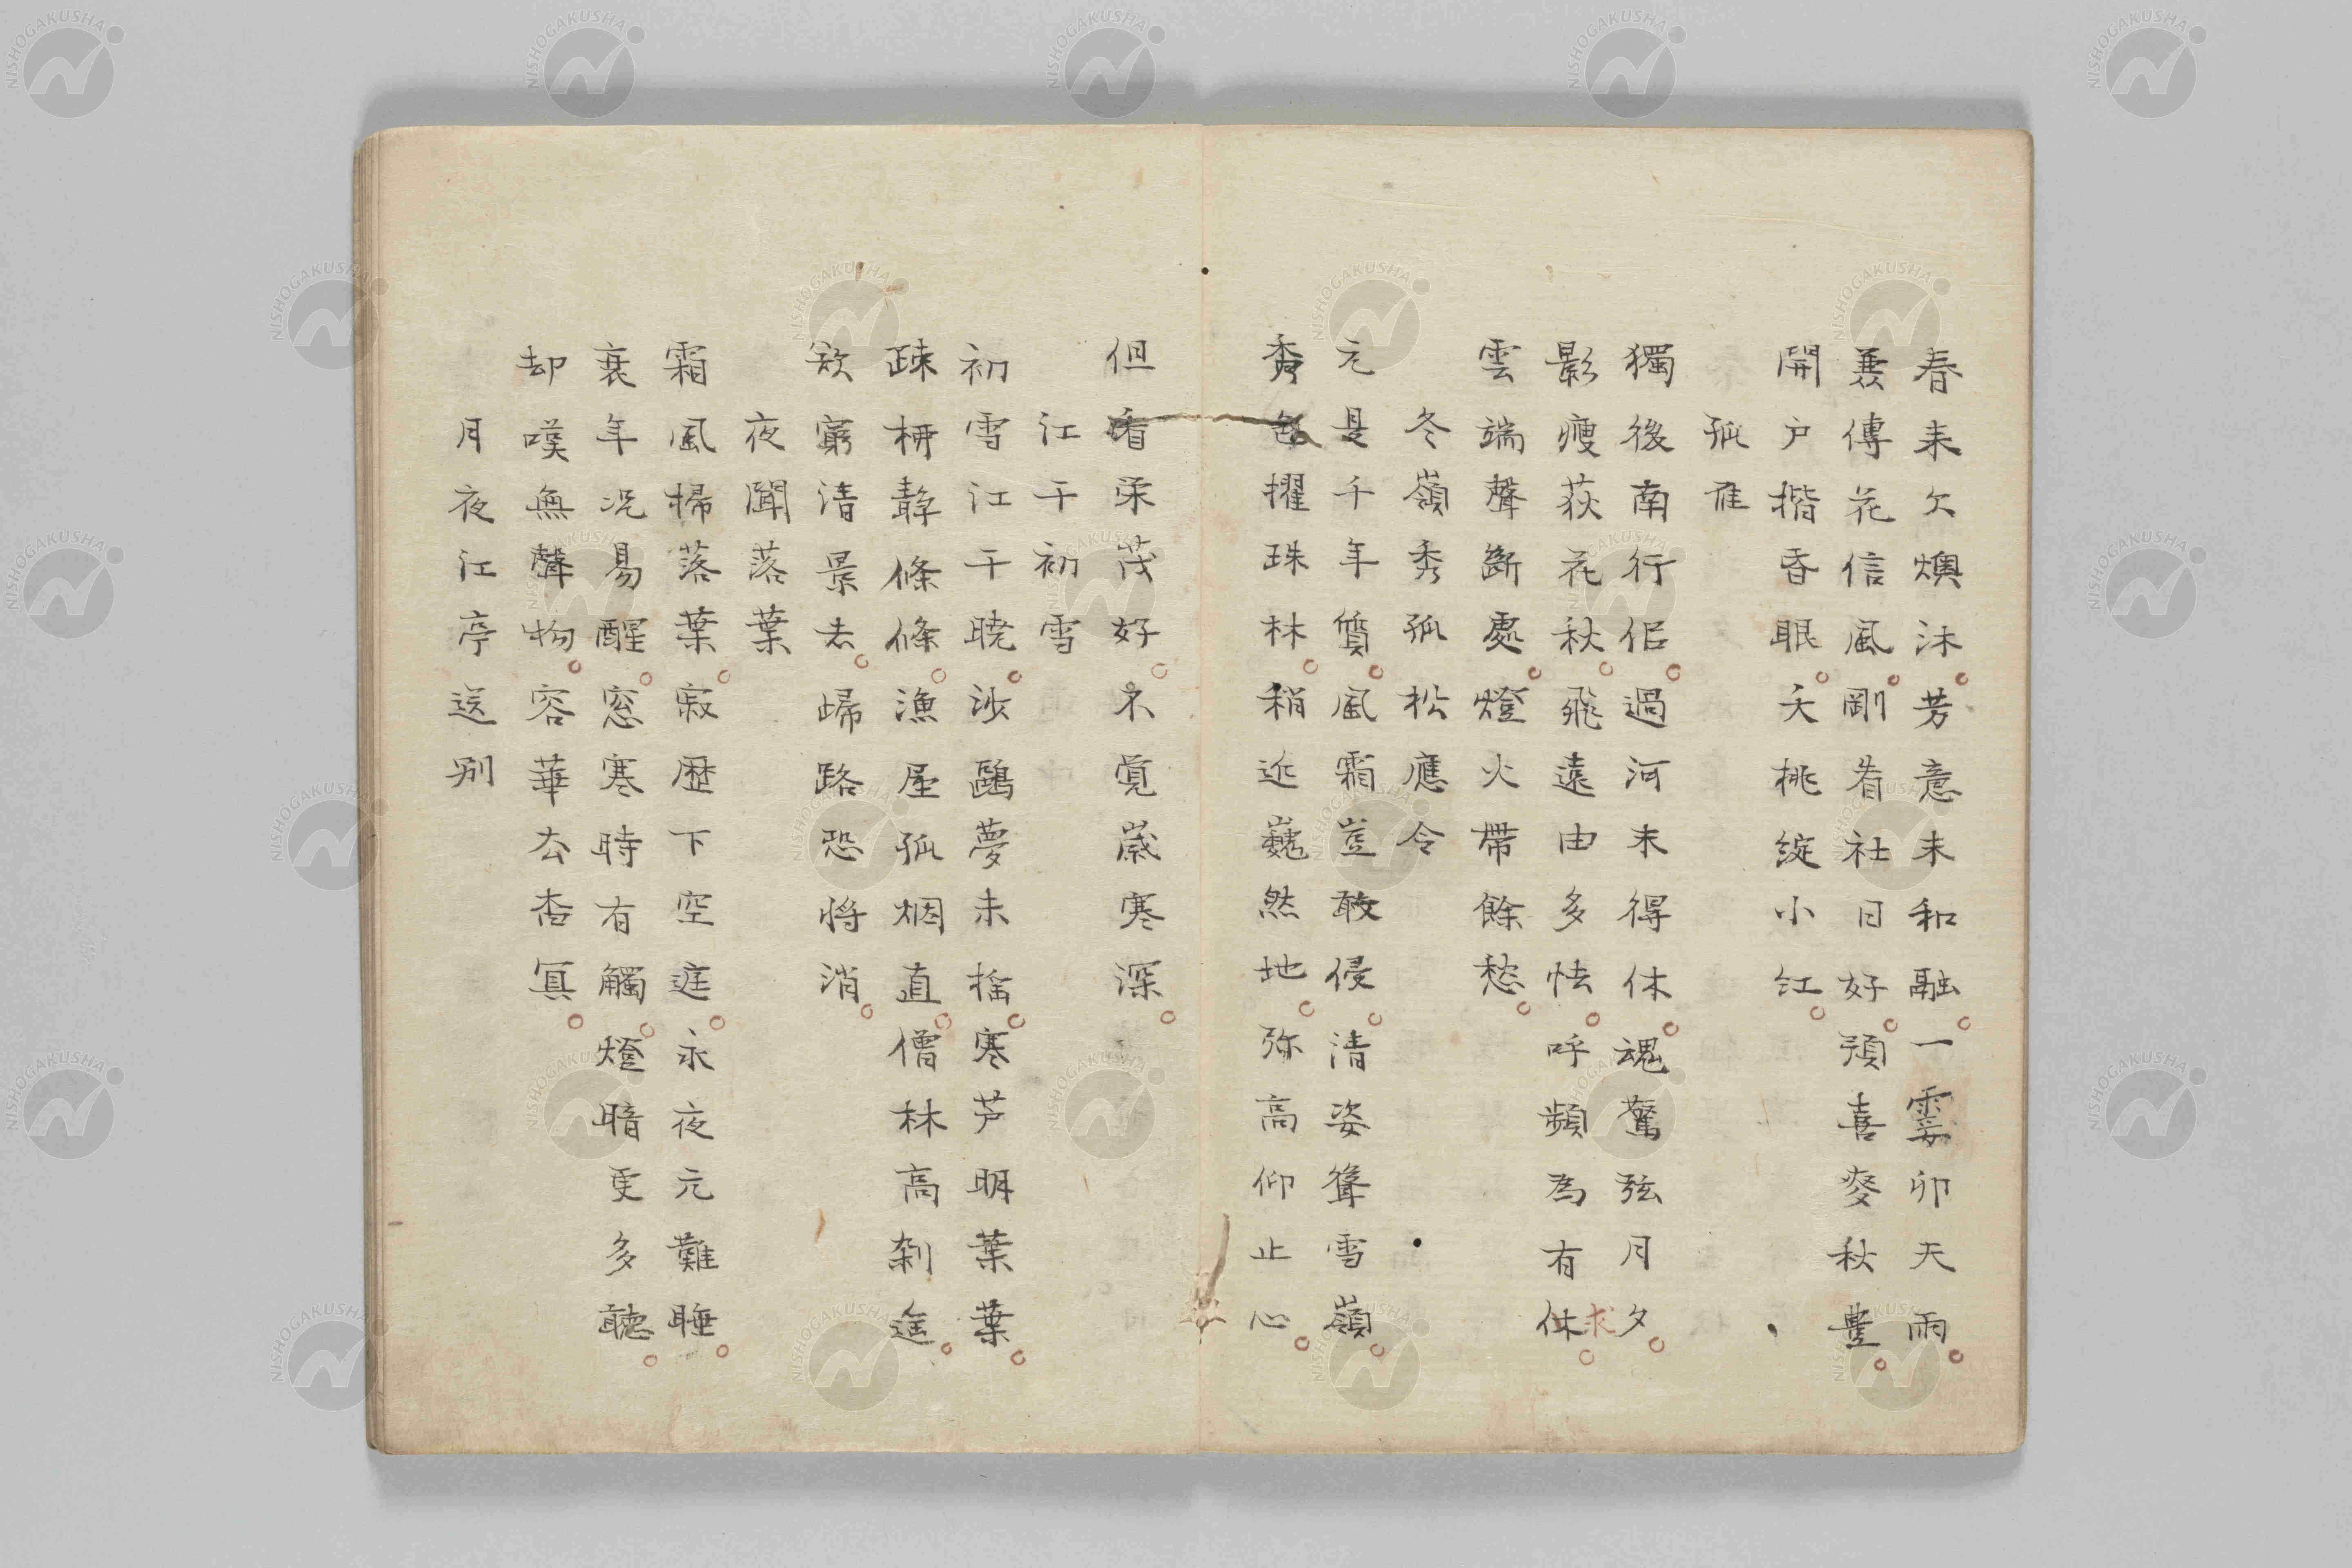 春来欠燠沐芳意未和融一霎卯天雨
羨傳花信風剛看社日好預喜麥秋豊
開戸揩昏眠夭桃綻小紅
孤雁
獨後南行侶過河未得休魂驚弦月夕
影瘦荻花秋飛遠由多怯呼頻為有休求
雲端聲斷處燈火帶餘愁
冬嶺秀孤松應令
元是千年質風霜豈敢侵清姿聳雪嶺
秀色擢珠林稍近巍然地弥高仰止心
但看柔茂好不覓歳寒深
江干初雪
初雪江干暁沙鷗夢未揺寒芦明葉葉
疎柳靜條條漁屋孤烟直僧林高刹遥
欲窮清景去歸路恐將消
夜聞落葉
霜風掃落葉寂歴下空庭永夜元難睡
衰年况易醒窓寒時有觸燈暗更多聽
却嘆無聲物容華去杳冥
月夜江亭送別
NISHOGAKUSHA